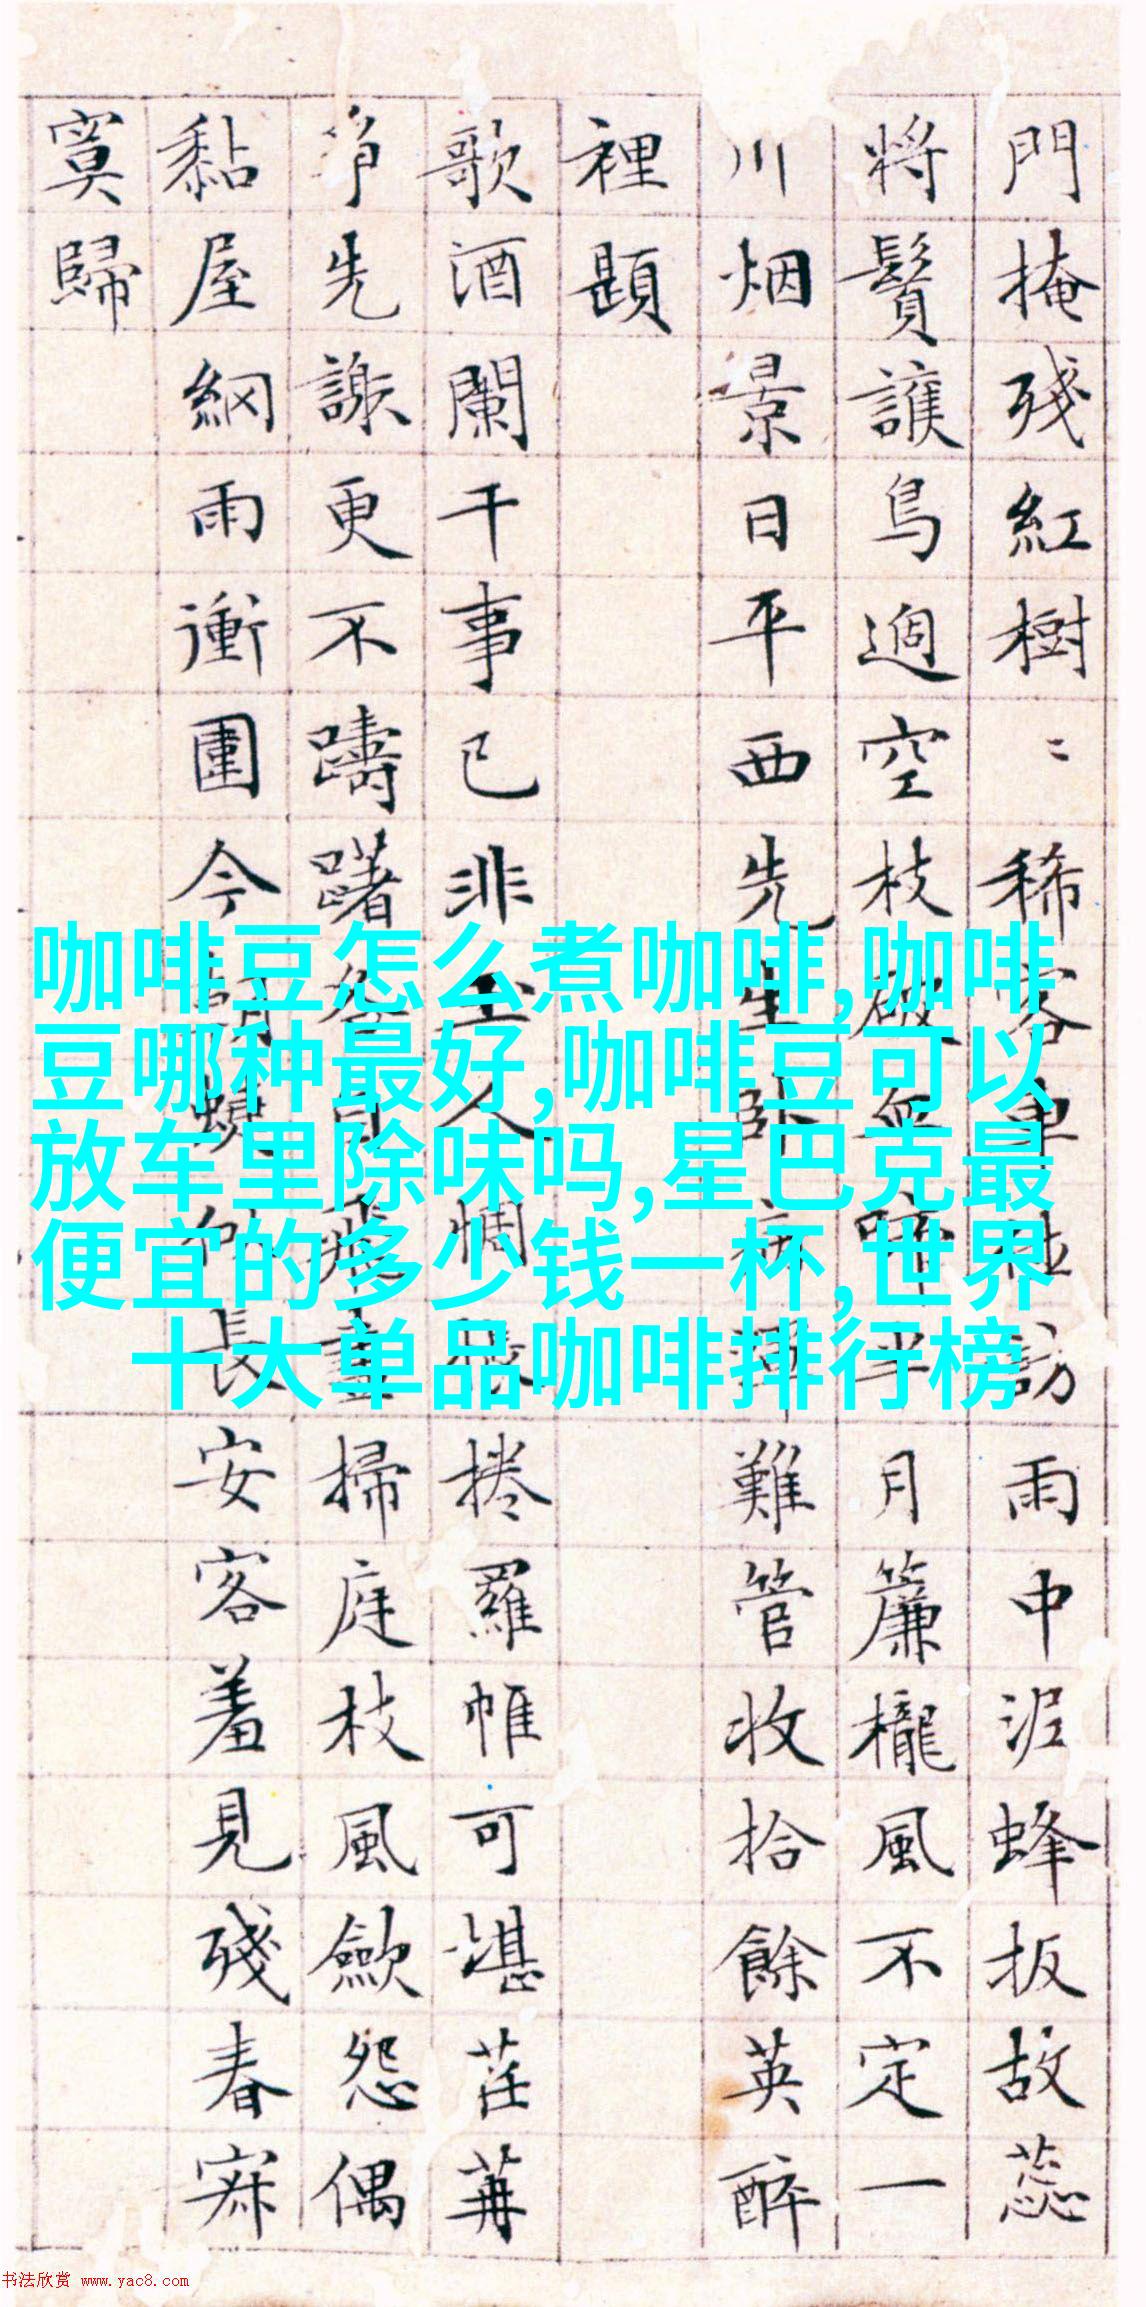 門掩殘紅樹〻稀客車雨中泥蜂扳故蕊
將鬢護鳥過空枝月簾櫳風不定一
川烟景日平西先難管收拾餘英醉
裡題
歌酒闌干事已非人惆捲羅帷可堪茌苒
爭先謝更不躊躇掃庭枝風歛怨偶
黏屋網雨衝圍今長安客羞見殘春寂
寞歸
咖啡豆怎么煮咖啡,咖啡
豆哪种最好,咖啡豆可以
放车里除味吗,星巴克最
便宜的多少钱一杯,世界
十大单品咖啡排行榜
书法欣赏 www.yac8.com